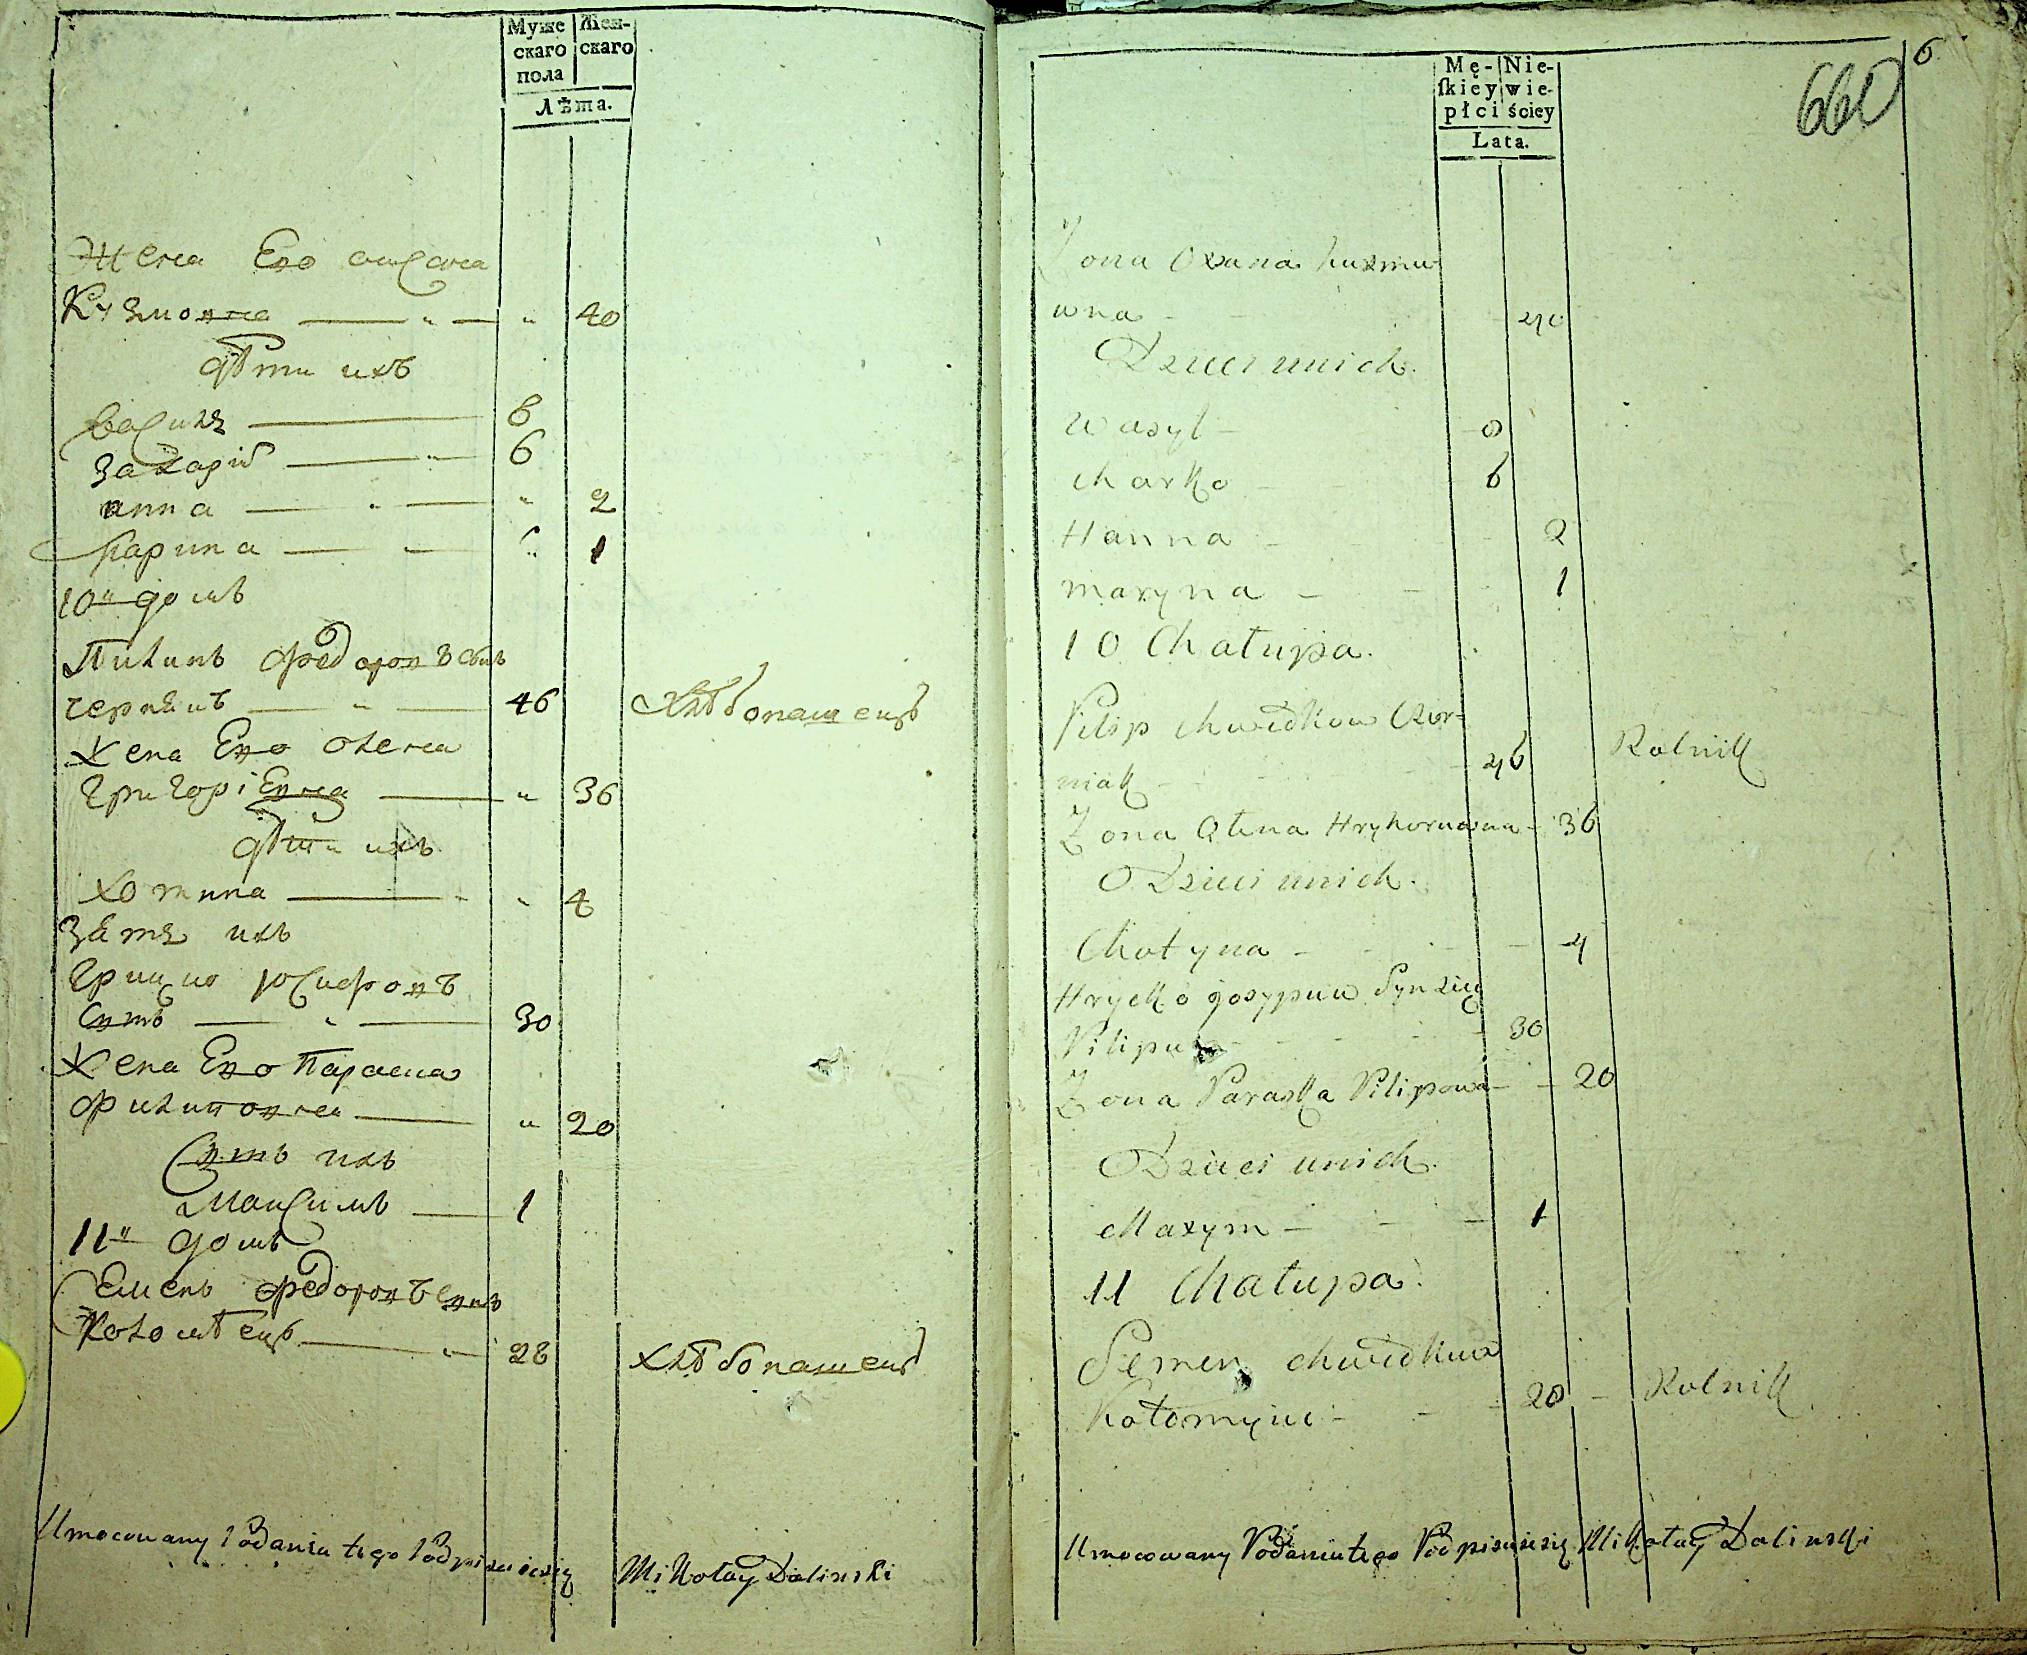 Муже
скаго
пола
Жен-
скаго
Лѣта.
Жена Его оксана
Кузмовна — „ — „ 40
дѣти ихъ
василь — 8
захарій — „ — 6
анна — „ — „ 2
марина — — „ 1
10й домъ
Пилипъ федоровъ сынъ
чернякъ — „ — 46 Хлѣбопашецъ
жена Его олена
григоріевна — „ 36
дѣти ихъ
хотина — „ 4
зять ихъ
грицко юсифовъ
сынъ — „ — 30
жена Его Параска
филиповна — „ 20
сынъ ихъ
максимъ — 1
11й домъ
семенъ федоровъ сынъ
коломѣецъ — „ — 28 хлѣбопашецъ
Umocowany Podania tego Podpisuie się Mikołay Dalinski
660
6
Mę-
skiey
płci
Nie-
wie-
ściey
Lata.
Zona Oxana kuzmu
wna - 40
Dzieci u nich.
Wasyl - 8
Charko - 6
Hanna - 2
maryna - 1
10 Chałupa.
Pilip Chwedkow Czer-
niak - 46 Rolnik
Zona Olena Hryhoruwna - 36
Dzieci u nich.
Chotyna - 4
Hrycko Josypuw Syn zięć
Pilipa - 30
Zona Paraska Pilipowa - 20
Dzieci u nich.
Maxym - 1
11 Chałupa.
Semen Chwedkuw
Kołomyiec - 28 - Rolnik
Umocowany Podania tego Podpisuie się Mikołay Dalinski